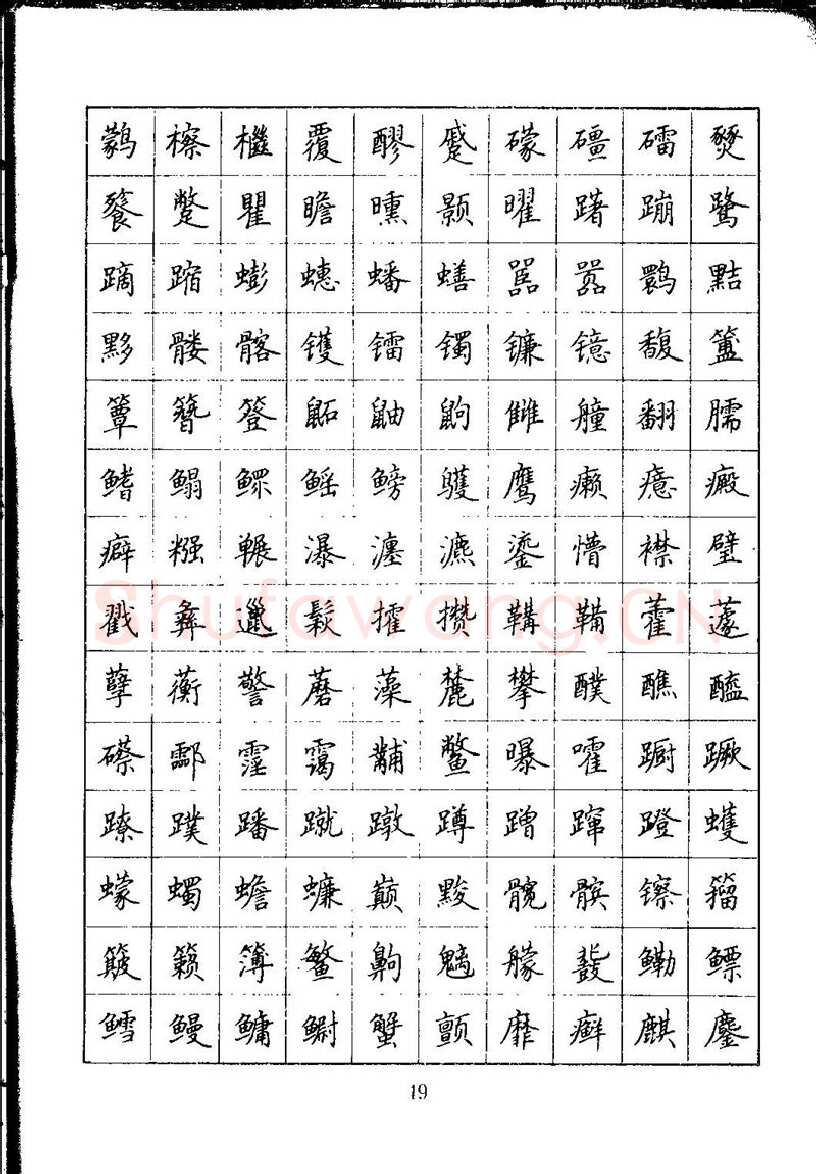 鹲檫檵覆醪蹙礞礓礌燹
餮蹩瞿瞻曛颢曜躇蹦鹭
蹢蹜蟛蟪蟠蟮嚚嚣鹮黠
黟髅髂镬镭镯镰镱馥簠
簟簪簦鼫鼬鼩雠艟翻臑
鳍鳎鳏鳐鳑鹱鹰癞癔癜
癖糨冁瀑瀍瀌鎏懵襟璧
戳彝邋鬏攉攒鞲鞴藿蘧
孽蘅警蘑藻麓攀醭醮醯
礤酃霪霭黼鳖曝嚯蹰蹶
蹽蹼蹯蹴蹾蹲蹭蹿蹬蠖
蠓蠋蟾蠊巅黢髋髌镲籀
簸籁簿鳘齁魑艨鼗鳓鳔
鳕鳗鳙鳚蟹颤靡癣麒鏖
19
Shufawang.CN